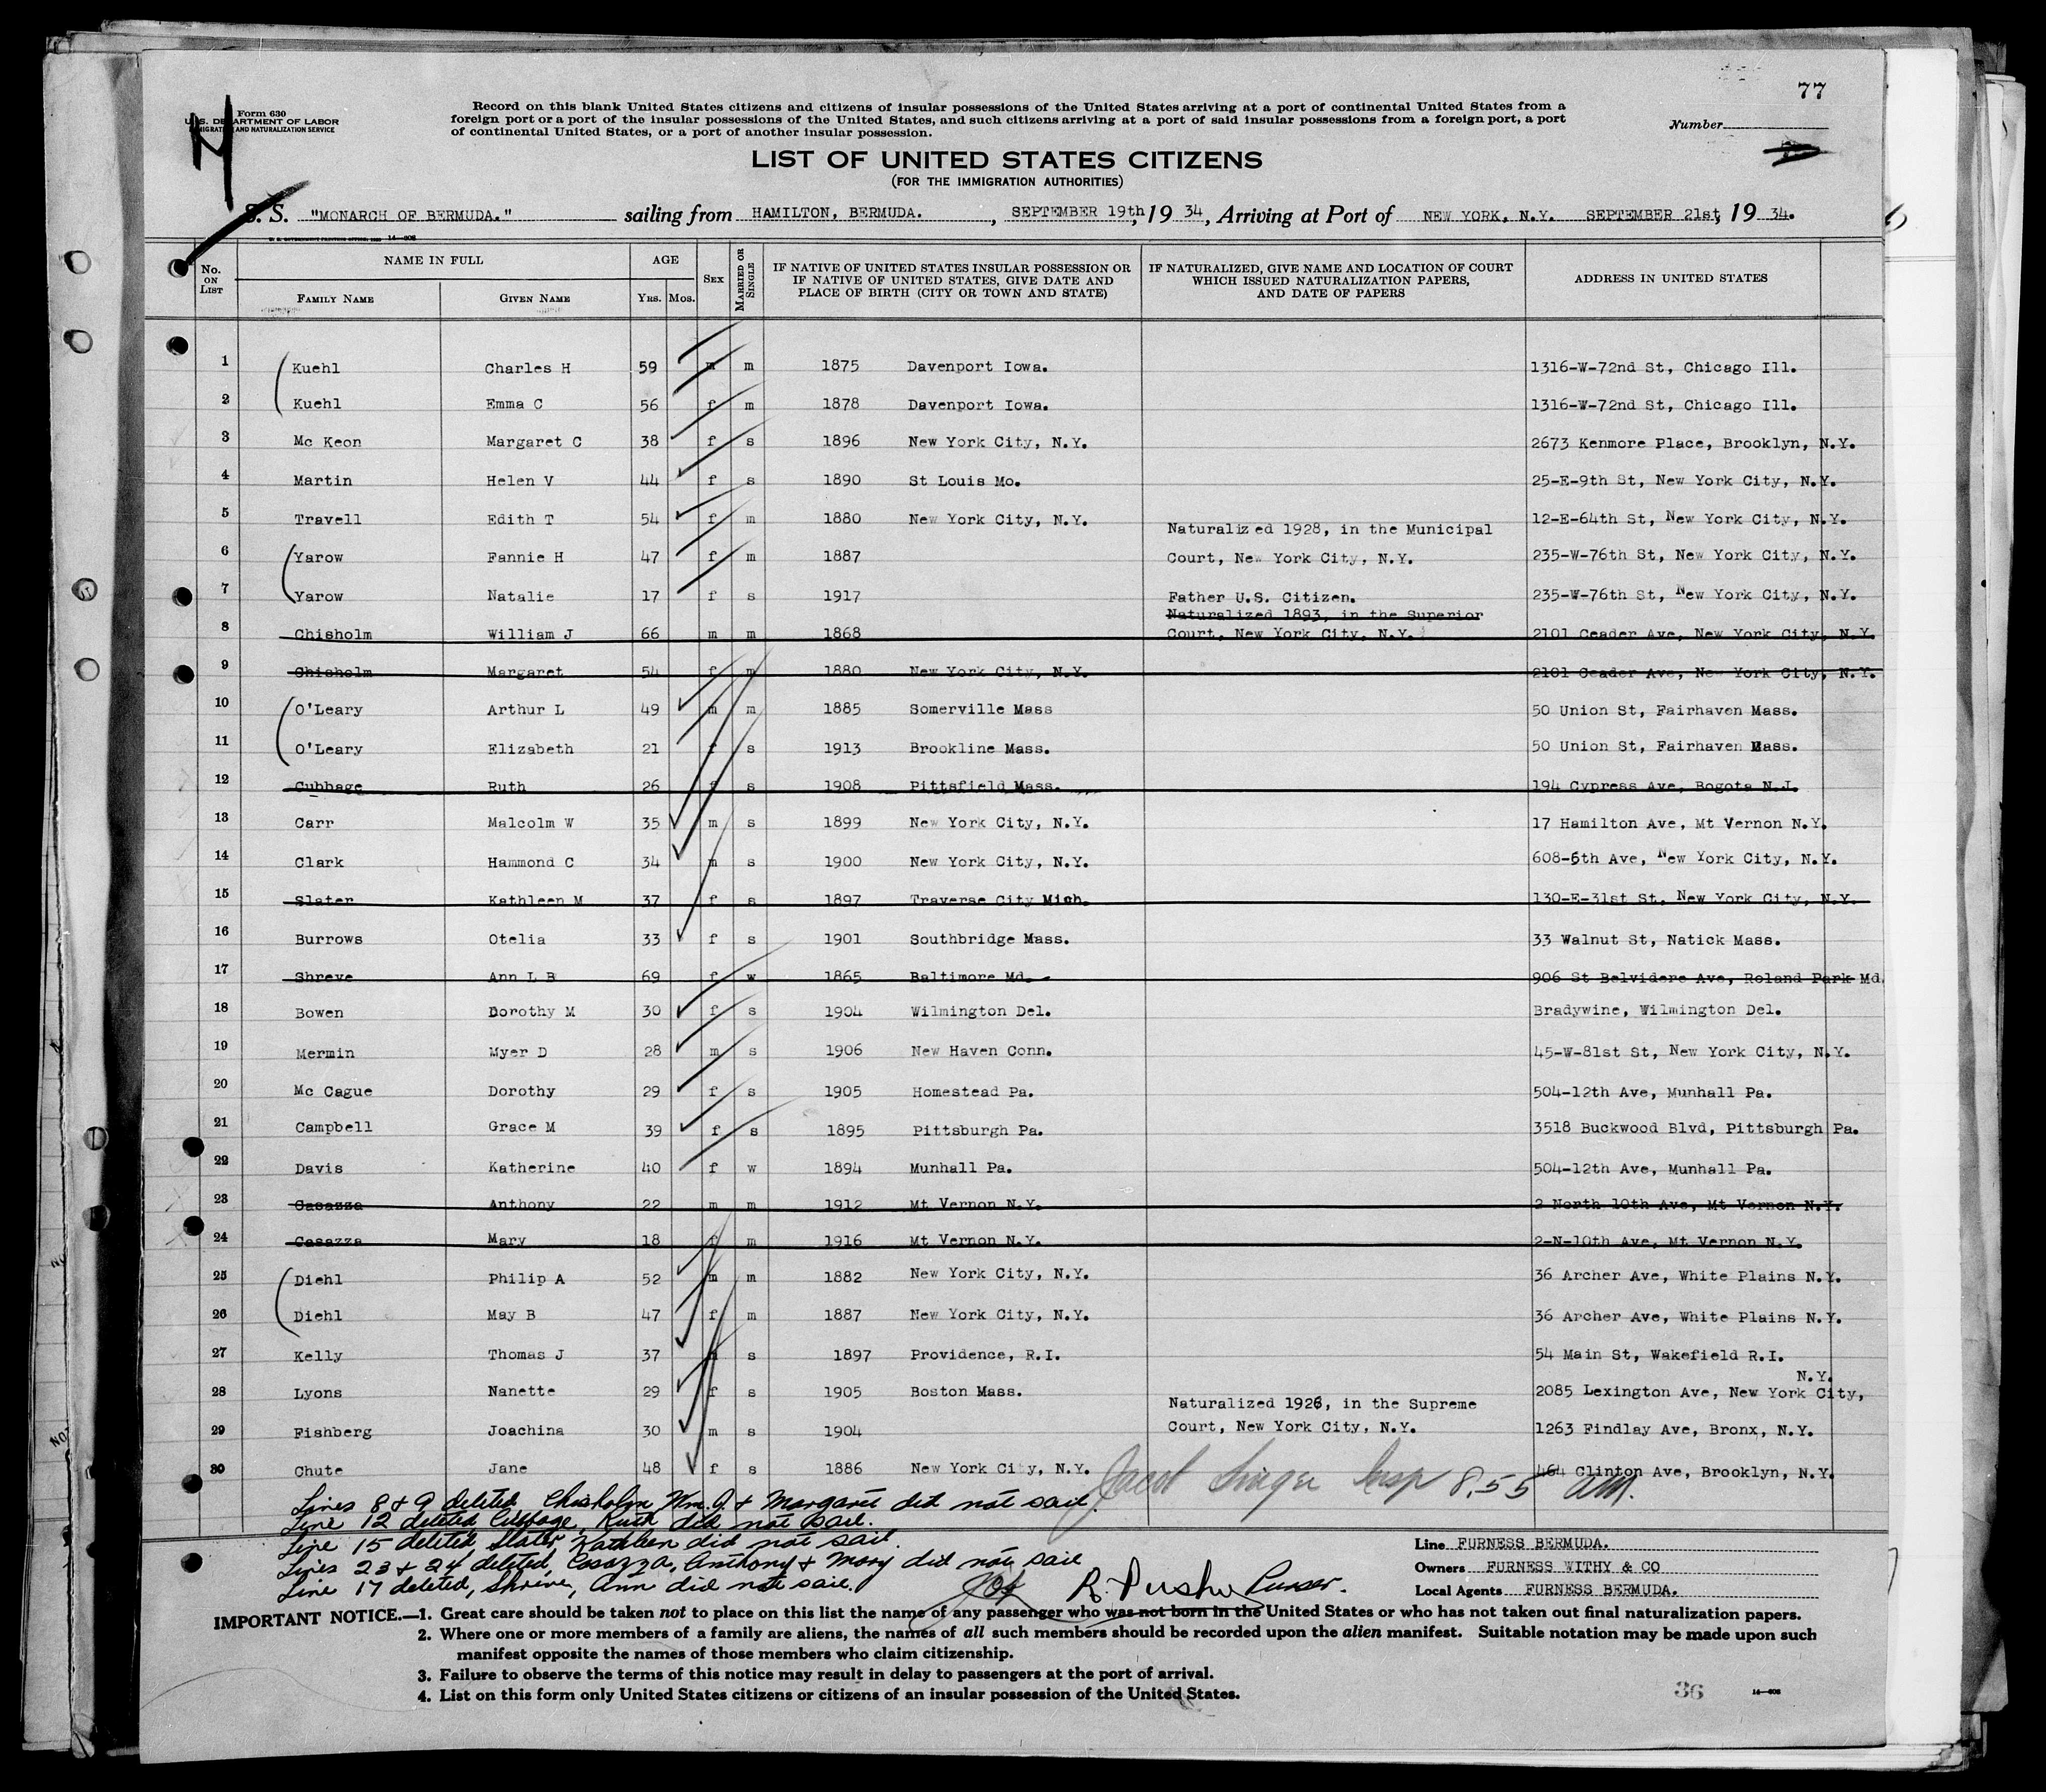 77
Form 630
U.S. DEPARTMENT OF LABOR
IMMIGRATION AND NATURALIZATION SERVICE
Record on this blank United States citizens and citizens of insular possessions of the United States arriving at a port of continental United States from a
foreign port or a port of the insular possessions of the United States, and such citizens arriving at a port of said insular possessions from a foreign port, a port
of continental United States, or a port of another insular possession.
Number
LIST OF UNITED STATES CITIZENS
(FOR THE IMMIGRATION AUTHORITIES)
S. S. "MONARCH OF BERMUDA." sailing from HAMILTON, BERMUDA. , SEPTEMBER 19th, 19 34, Arriving at Port of NEW YORK, N.Y. SEPTEMBER 21st, 19 34.
U. S. GOVERNMENT PRINTING OFFICE: 1932 14-606
No. ON LIST NAME IN FULL AGE SEX MARRIED OR SINGLE IF NATIVE OF UNITED STATES INSULAR POSSESSION OR IF NATIVE OF UNITED STATES, GIVE DATE AND PLACE OF BIRTH (CITY OR TOWN AND STATE) IF NATURALIZED, GIVE NAME AND LOCATION OF COURT WHICH ISSUED NATURALIZATION PAPERS, AND DATE OF PAPERS ADDRESS IN UNITED STATES
FAMILY NAME GIVEN NAME YRS. MOS.
1 Kuehl Charles H 59 m m 1875 Davenport Iowa. 1316-W-72nd St, Chicago Ill.
2 Kuehl Emma C 56 f m 1878 Davenport Iowa. 1316-W-72nd St, Chicago Ill.
3 Mc Keon Margaret C 38 f s 1896 New York City, N.Y. 2673 Kenmore Place, Brooklyn, N.Y.
4 Martin Helen V 44 f s 1890 St Louis Mo. 25-E-9th St, New York City, N.Y.
5 Travell Edith T 54 f m 1880 New York City, N.Y. 12-E-64th St, New York City, N.Y.
Naturalized 1928, in the Municipal
6 Yarow Fannie H 47 f m 1887 Court, New York City, N.Y. 235-W-76th St, New York City, N.Y.
7 Yarow Natalie 17 f s 1917 Father U.S. Citizen. 235-W-76th St, New York City, N.Y.
Naturalized 1893, in the Superior
8 Chisholm William J 66 m m 1868 Court, New York City, N.Y. 2101 Ceader Ave, New York City, N.Y.
9 Chisholm Margaret 54 f m 1880 New York City, N.Y. 2101 Ceader Ave, New York City, N.Y.
10 O'Leary Arthur L 49 m m 1885 Somerville Mass 50 Union St, Fairhaven Mass.
11 O'Leary Elizabeth 21 f s 1913 Brookline Mass. 50 Union St, Fairhaven Mass.
12 Cubbage Ruth 26 f s 1908 Pittsfield Mass. 194 Cypress Ave, Bogota N.J.
13 Carr Malcolm W 35 m s 1899 New York City, N.Y. 17 Hamilton Ave, Mt Vernon N.Y.
14 Clark Hammond C 34 m s 1900 New York City, N.Y. 608-5th Ave, New York City, N.Y.
15 Slater Kathleen M 37 f s 1897 Traverse City Mich. 130-E-31st St, New York City, N.Y.
16 Burrows Otelia 33 f s 1901 Southbridge Mass. 33 Walnut St, Natick Mass.
17 Shreve Ann L B 69 f w 1865 Baltimore Md. 906 St Belvidere Ave, Roland Park Md.
18 Bowen Dorothy M 30 f s 1904 Wilmington Del. Bradywine, Wilmington Del.
19 Mermin Myer D 28 m s 1906 New Haven Conn. 45-W-81st St, New York City, N.Y.
20 Mc Cague Dorothy 29 f s 1905 Homestead Pa. 504-12th Ave, Munhall Pa.
21 Campbell Grace M 39 f s 1895 Pittsburgh Pa. 3518 Buckwood Blvd, Pittsburgh Pa.
22 Davis Katherine 40 f w 1894 Munhall Pa. 504-12th Ave, Munhall Pa.
23 Casazza Anthony 22 m m 1912 Mt Vernon N.Y. 2 North 10th Ave, Mt Vernon N.Y.
24 Casazza Mary 18 f m 1916 Mt Vernon N.Y. 2-N-10th Ave, Mt Vernon N.Y.
25 Diehl Philip A 52 m m 1882 New York City, N.Y. 36 Archer Ave, White Plains N.Y.
26 Diehl May B 47 f m 1887 New York City, N.Y. 36 Archer Ave, White Plains N.Y.
27 Kelly Thomas J 37 s 1897 Providence, R.I. 54 Main St, Wakefield R.I.
N.Y.
28 Lyons Nanette 29 f s 1905 Boston Mass. 2085 Lexington Ave, New York City,
Naturalized 1926, in the Supreme
29 Fishberg Joachina 30 m s 1904 Court, New York City, N.Y. 1263 Findlay Ave, Bronx, N.Y.
30 Chute Jane 48 f s 1886 New York City, N.Y. 464 Clinton Ave, Brooklyn, N.Y.
Jacob Singer Insp 8.55 AM.
Lines 8 & 9 deleted, Chisholm Wm. J. & Margaret did not sail.
Line 12 deleted, Cubbage, Ruth did not sail.
Line 15 deleted, Slater, Kathleen did not sail.
Lines 23 & 24 deleted, Casazza, Anthony & Mary did not sail
Line 17 deleted, Shreve, Ann did not sail.
Purser.
Line FURNESS BERMUDA.
Owners FURNESS WITHY & CO
Local Agents FURNESS BERMUDA.
IMPORTANT NOTICE.—1. Great care should be taken not to place on this list the name of any passenger who was not born in the United States or who has not taken out final naturalization papers.
2. Where one or more members of a family are aliens, the names of all such members should be recorded upon the alien manifest. Suitable notation may be made upon such
manifest opposite the names of those members who claim citizenship.
3. Failure to observe the terms of this notice may result in delay to passengers at the port of arrival.
4. List on this form only United States citizens or citizens of an insular possession of the United States.
36
14-606